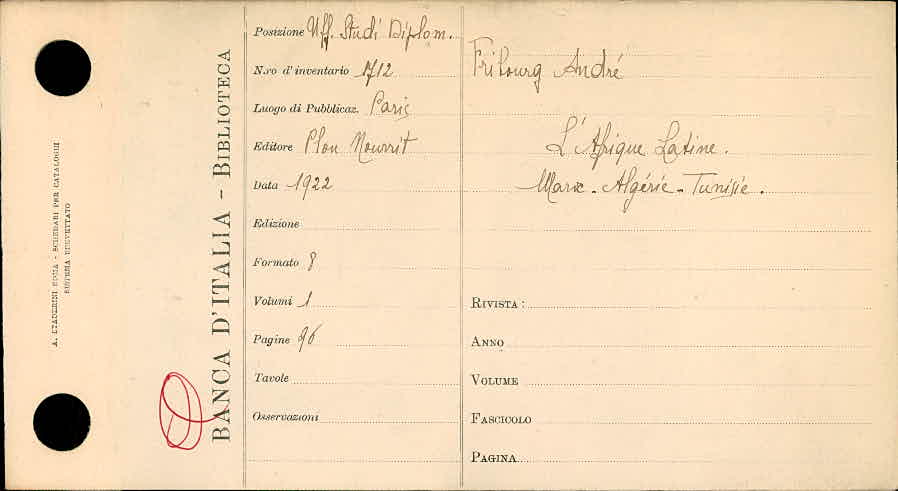 A. STADERINI ROMA - SCHEDARI PER CATALOGHI
SISTEMA BREVETTATO
BANCA D'ITALIA - BIBLIOTECA
Posizione Uff. Studi Diplom.
N.ro d'inventario 1712
Luogo di Pubblicaz. Paris
Editore Plon Nourrit
Data 1922
Edizione
Formato 8
Volumi 1
Pagine 96
Tavole
Osservazioni
Fribourg André
L'Afrique Latine.
Maroc - Algérie - Tunisie.
RIVISTA:
ANNO
VOLUME
FASCICOLO
PAGINA